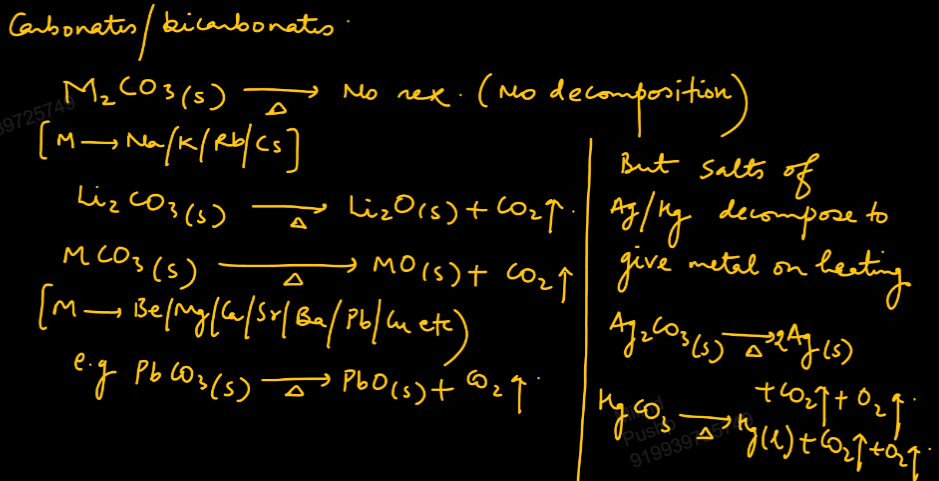 Carbonates/bicarbonates.
M₂CO₃(s) —Δ→ No rex. (No decomposition)
[M → Na/K/Rb/Cs]
Li₂CO₃(s) —Δ→ Li₂O(s) + CO₂↑.
MCO₃(s) —Δ→ MO(s) + CO₂↑
[M → Be/Mg/Ca/Sr/Ba/Pb/Cu etc)
e.g PbCO₃(s) —Δ→ PbO(s) + CO₂↑.
But salts of
Ag/Hg decompose to
give metal on heating
Ag₂CO₃(s) —Δ→ 2Ag(s)
+ CO₂↑ + O₂↑.
HgCO₃ —Δ→ Hg(l) + CO₂↑ + O₂↑.
39725749